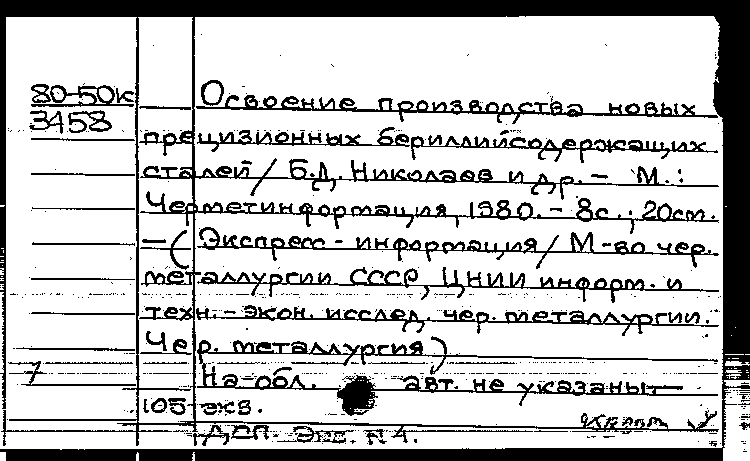 80-50к
3458
Освоение производства новых
прецизионных бериллийсодержащих
сталей / Б.Д. Николаев и др. - М.:
Черметинформация, 1980. - 8с.; 20см.
- (Экспресс-информация / М-во чер.
металлургии СССР, ЦНИИ информ. и
техн.-экон. исслед. чер. металлургии.
Чер. металлургия)
7
На обл. авт. не указаны.-
105 экз.
ДСП. Экз. N 4.